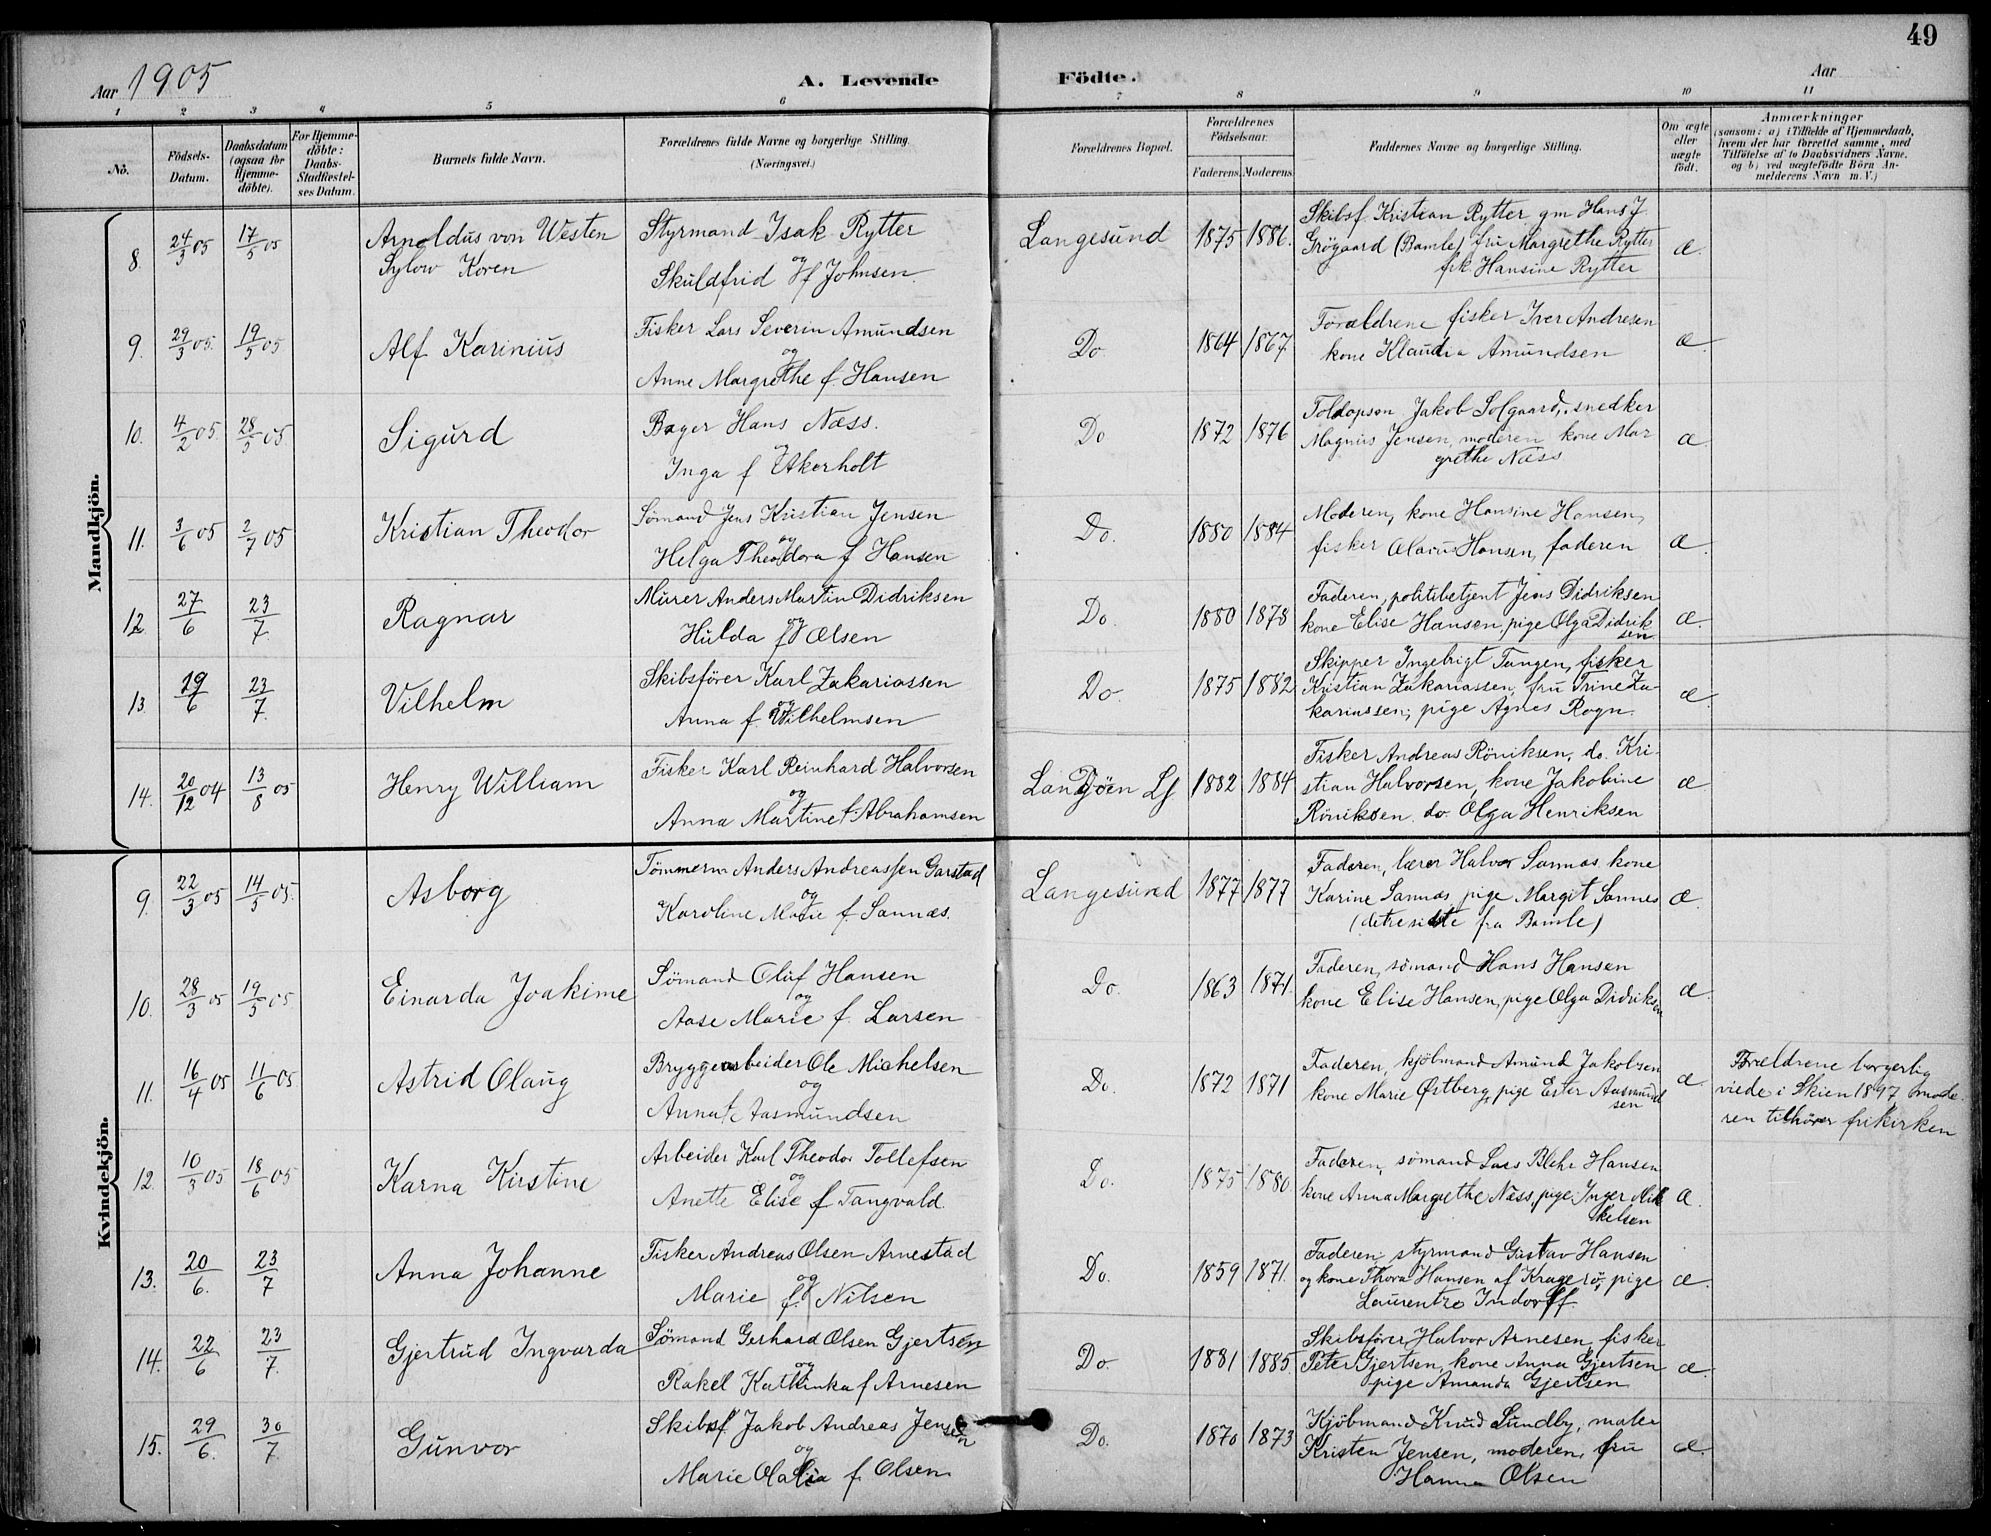 49
Aar 1905
A. Levende
Födte.
Aar
1 2 3 4 5 6 7 8 9 10 11
No.
Födsels-
Datum.
Daabsdatum
(ogsaa for
Hjemme-
döbte).
For Hjemme-
döbte:
Daabs-
Stadfæstel-
ses Datum.
Barnets fulde Navn.
Forældrenes fulde Navne og borgerlige Stilling.
(Næringsvei.)
Forældrenes Bopæl.
Forældrenes
Födselsaar.
Faderens. Moderens.
Faddernes Navne og borgerlige Stilling.
Om ægte
eller
uægte
födt.
Anmærkninger
(saasom: a) i Tilfælde af Hjemmedaab,
hvem der har forrettet samme, med
Tilföielse af to Daabsvidners Navne,
og b) ved uægtefödte Börn An-
melderens Navn m. V.)
Mandkjön.
8. 24/3 05 17/5 05
Arnoldus von Westen
Sylow Koren
Styrmand Isak Rytter
og
Skuldfrid f Johnsen.
Langesund 1875 1886.
Skibsf Kristian Rytter gm Hans J
Grögaard (Bamle) fru Margrethe Rytter
frk. Hansine Rytter
æ.
9. 29/3 05. 19/5 05
Alf Karinius
Fisker Lars Severin Amundsen
og
Anne Margrethe f. Hansen
Do. 1864 1867
Forældrene fisker Iver Andresen
kone Klaudia Amundsen
æ
10. 4/2 05. 28/5 05
Sigurd
Bager Hans Næss.
og
Inga f Akerholt
Do 1872 1876
Toldopsen Jakob Solgaard, snedker
Magnus Jensen, moderen kone Mar
grethe Næss
æ
11. 3/6 05 2/7 05
Kristian Theodor
Sömand Jens Kristian Jensen
og
Helga Theodora f Hansen
Do. 1880 1884
Moderen, kone Hansine Hansen,
fisker Olaus Hansen, faderen
æ.
12 27/6 23/7.
Ragnar
Murer Anders Martin Didriksen
og
Hulda f Olsen
Do. 1880 1878
Faderen, politibetjent Jens Didriksen
kone Elise Hansen, pige Olga Didrik
sen.
æ.
13 19/6 23/7.
Vilhelm
Skibsförer Karl Zakariassen
og
Anna f. Wilhelmsen
Do. 1875 1882
Skipper Ingebrigt Tangen, fisker
Kristian Zakariassen, fru Trine Za-
kariassen, pige Agnes Rogn.
æ.
14. 20/12 04 13/8 05
Henry William
Fisker Karl Reinhard Halvorsen
og
Anna Martine f. Abrahamsen
Langöen Lg 1882 1884
Fisker Andreas Röniksen, do. Kri-
stian Halvorsen, kone Jakobine
Röniksen. do. Olga Henriksen
æ
Kvindekjön.
9. 22/3 05 14/5 05.
Asborg
Tömmerm Anders Andreassen Garstad
og
Karoline Marie f. Sannæs.
Langesund 1877 1877
Faderen, lærer Halvor Sannæs, kone
Karine Sannæs, pige Margit Sannes
(de tre sidste fra Bamle)
æ.
10. 28/3 05 19/5 05.
Einarda Joakime
Sömand Oluf Hansen
og
Aase Marie f. Larsen
Do. 1863 1871.
Faderen, sömand Hans Hansen
kone Elise Hansen, pige Olga Didriksen
æ.
11. 16/4 05 11/6 05
Astrid Olaug
Bryggearbeider Ole Michelsen
og
Anna f. Aasmundsen
Do. 1872 1871
Faderen, kjöbmand Amund Jakobsen
kone Marie Østberg, pige Ester Aasmund
sen
æ.
Forældrene borgerlig
viede i Skien 1897, mode
ren tilhörer frikirken
12. 10/3 05 18/6 05
Karna Kirstine
Arbeider Karl Theodor Tollefsen
og
Anette Elise f Tangvald.
Do. 1875 1880.
Faderen, sömand Lars Blehr Hansen
kone Anna Margrethe Næss, pige Inger Mik
kelsen
æ.
13. 20/6. 23/7
Anna Johanne
Fisker Andreas Olsen Arnestad
og
Marie f. Nilsen
Do. 1859 1871.
Faderen, styrmand Gustav Hansen
og kone Thora Hansen af Kragerö, pige
Laurentze Indorff
æ.
14. 22/6 23/7.
Gjertrud Ingvarda
Sömand Gerhard Olsen Gjertsen
og
Rakel Kathinka f Arnesen
Do. 1881 1885.
Skibsförer Halvor Arnesen, fisker
Peter Gjertsen, kone Anna Gjertsen
pige Amanda Gjertsen
æ.
15. 29/6. 30/7.
Gunvor
Skibsf Jakob Andreas Jensen
og
Marie Olalia f. Olsen
Do. 1870 1873
Kjöbmand Knud Lundby, maler
Kristen Jensen, moderen, fru
Hanna Olsen
æ.